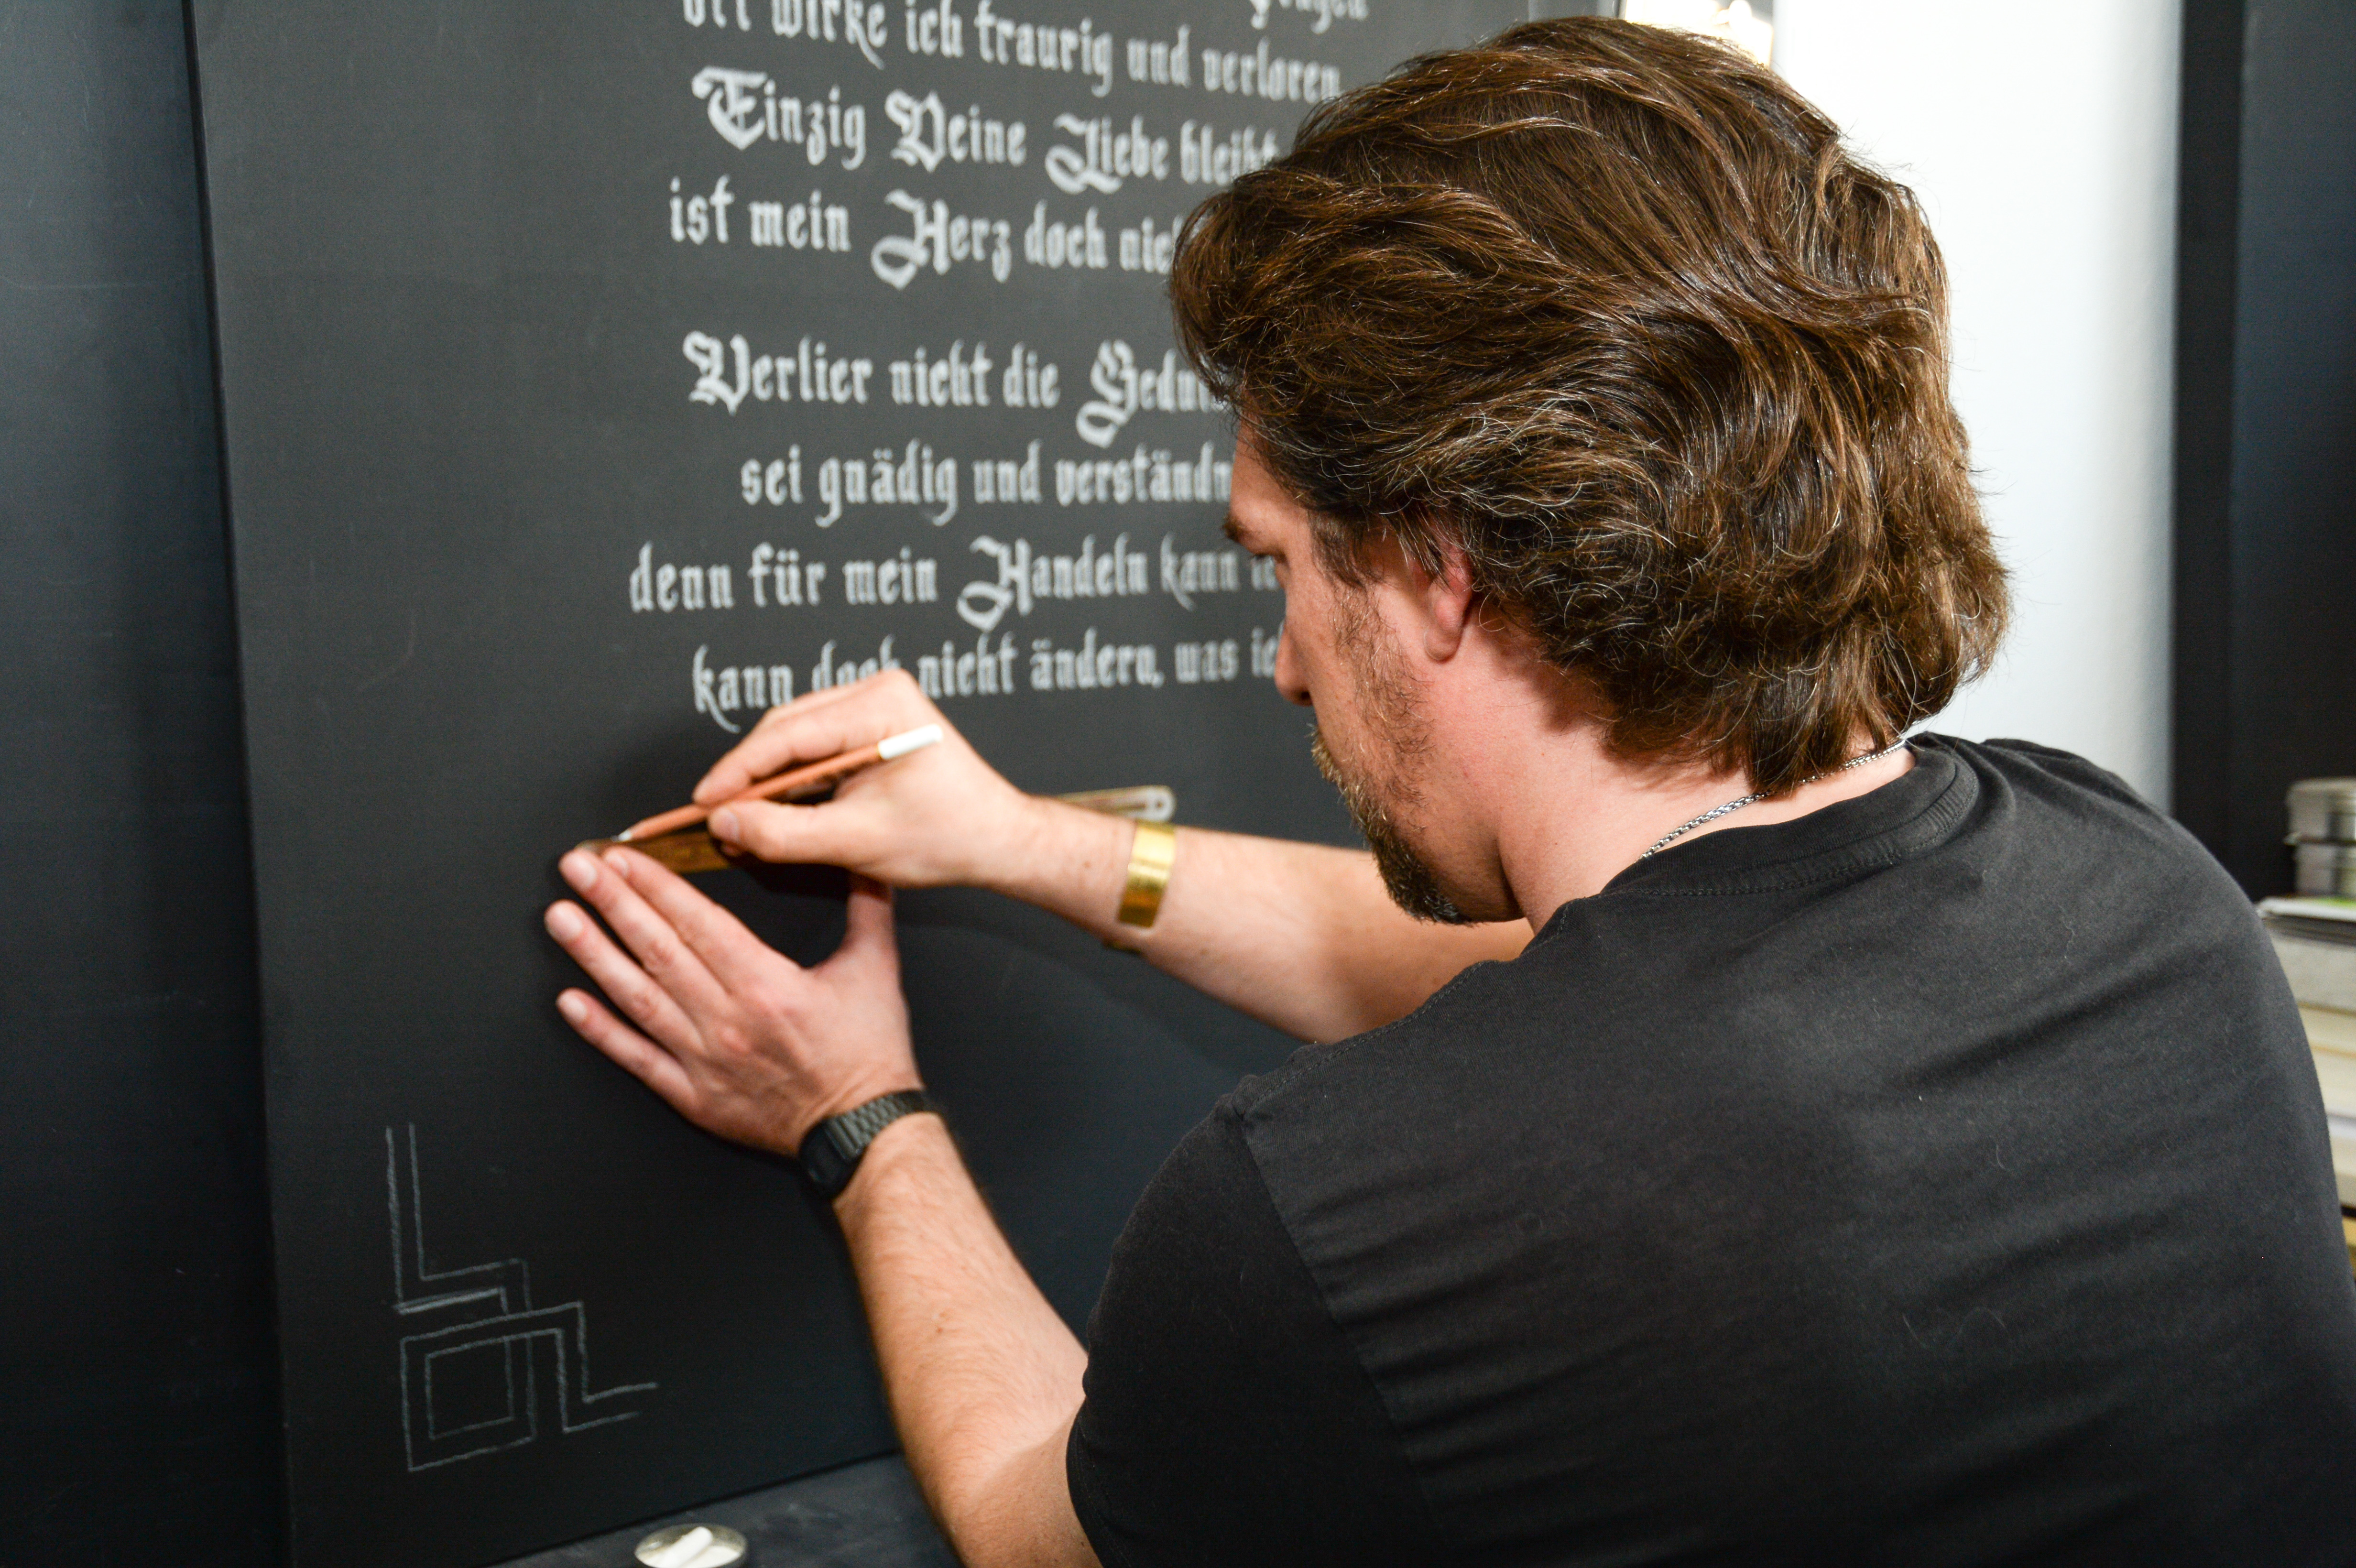 wirke ich traurig und verloren
Einzig Deine Liebe bleibt
ist mein Herz doch
Verlier nicht die
sei gnädig und
denn für mein Handeln kann
kann doch nicht ändern, was